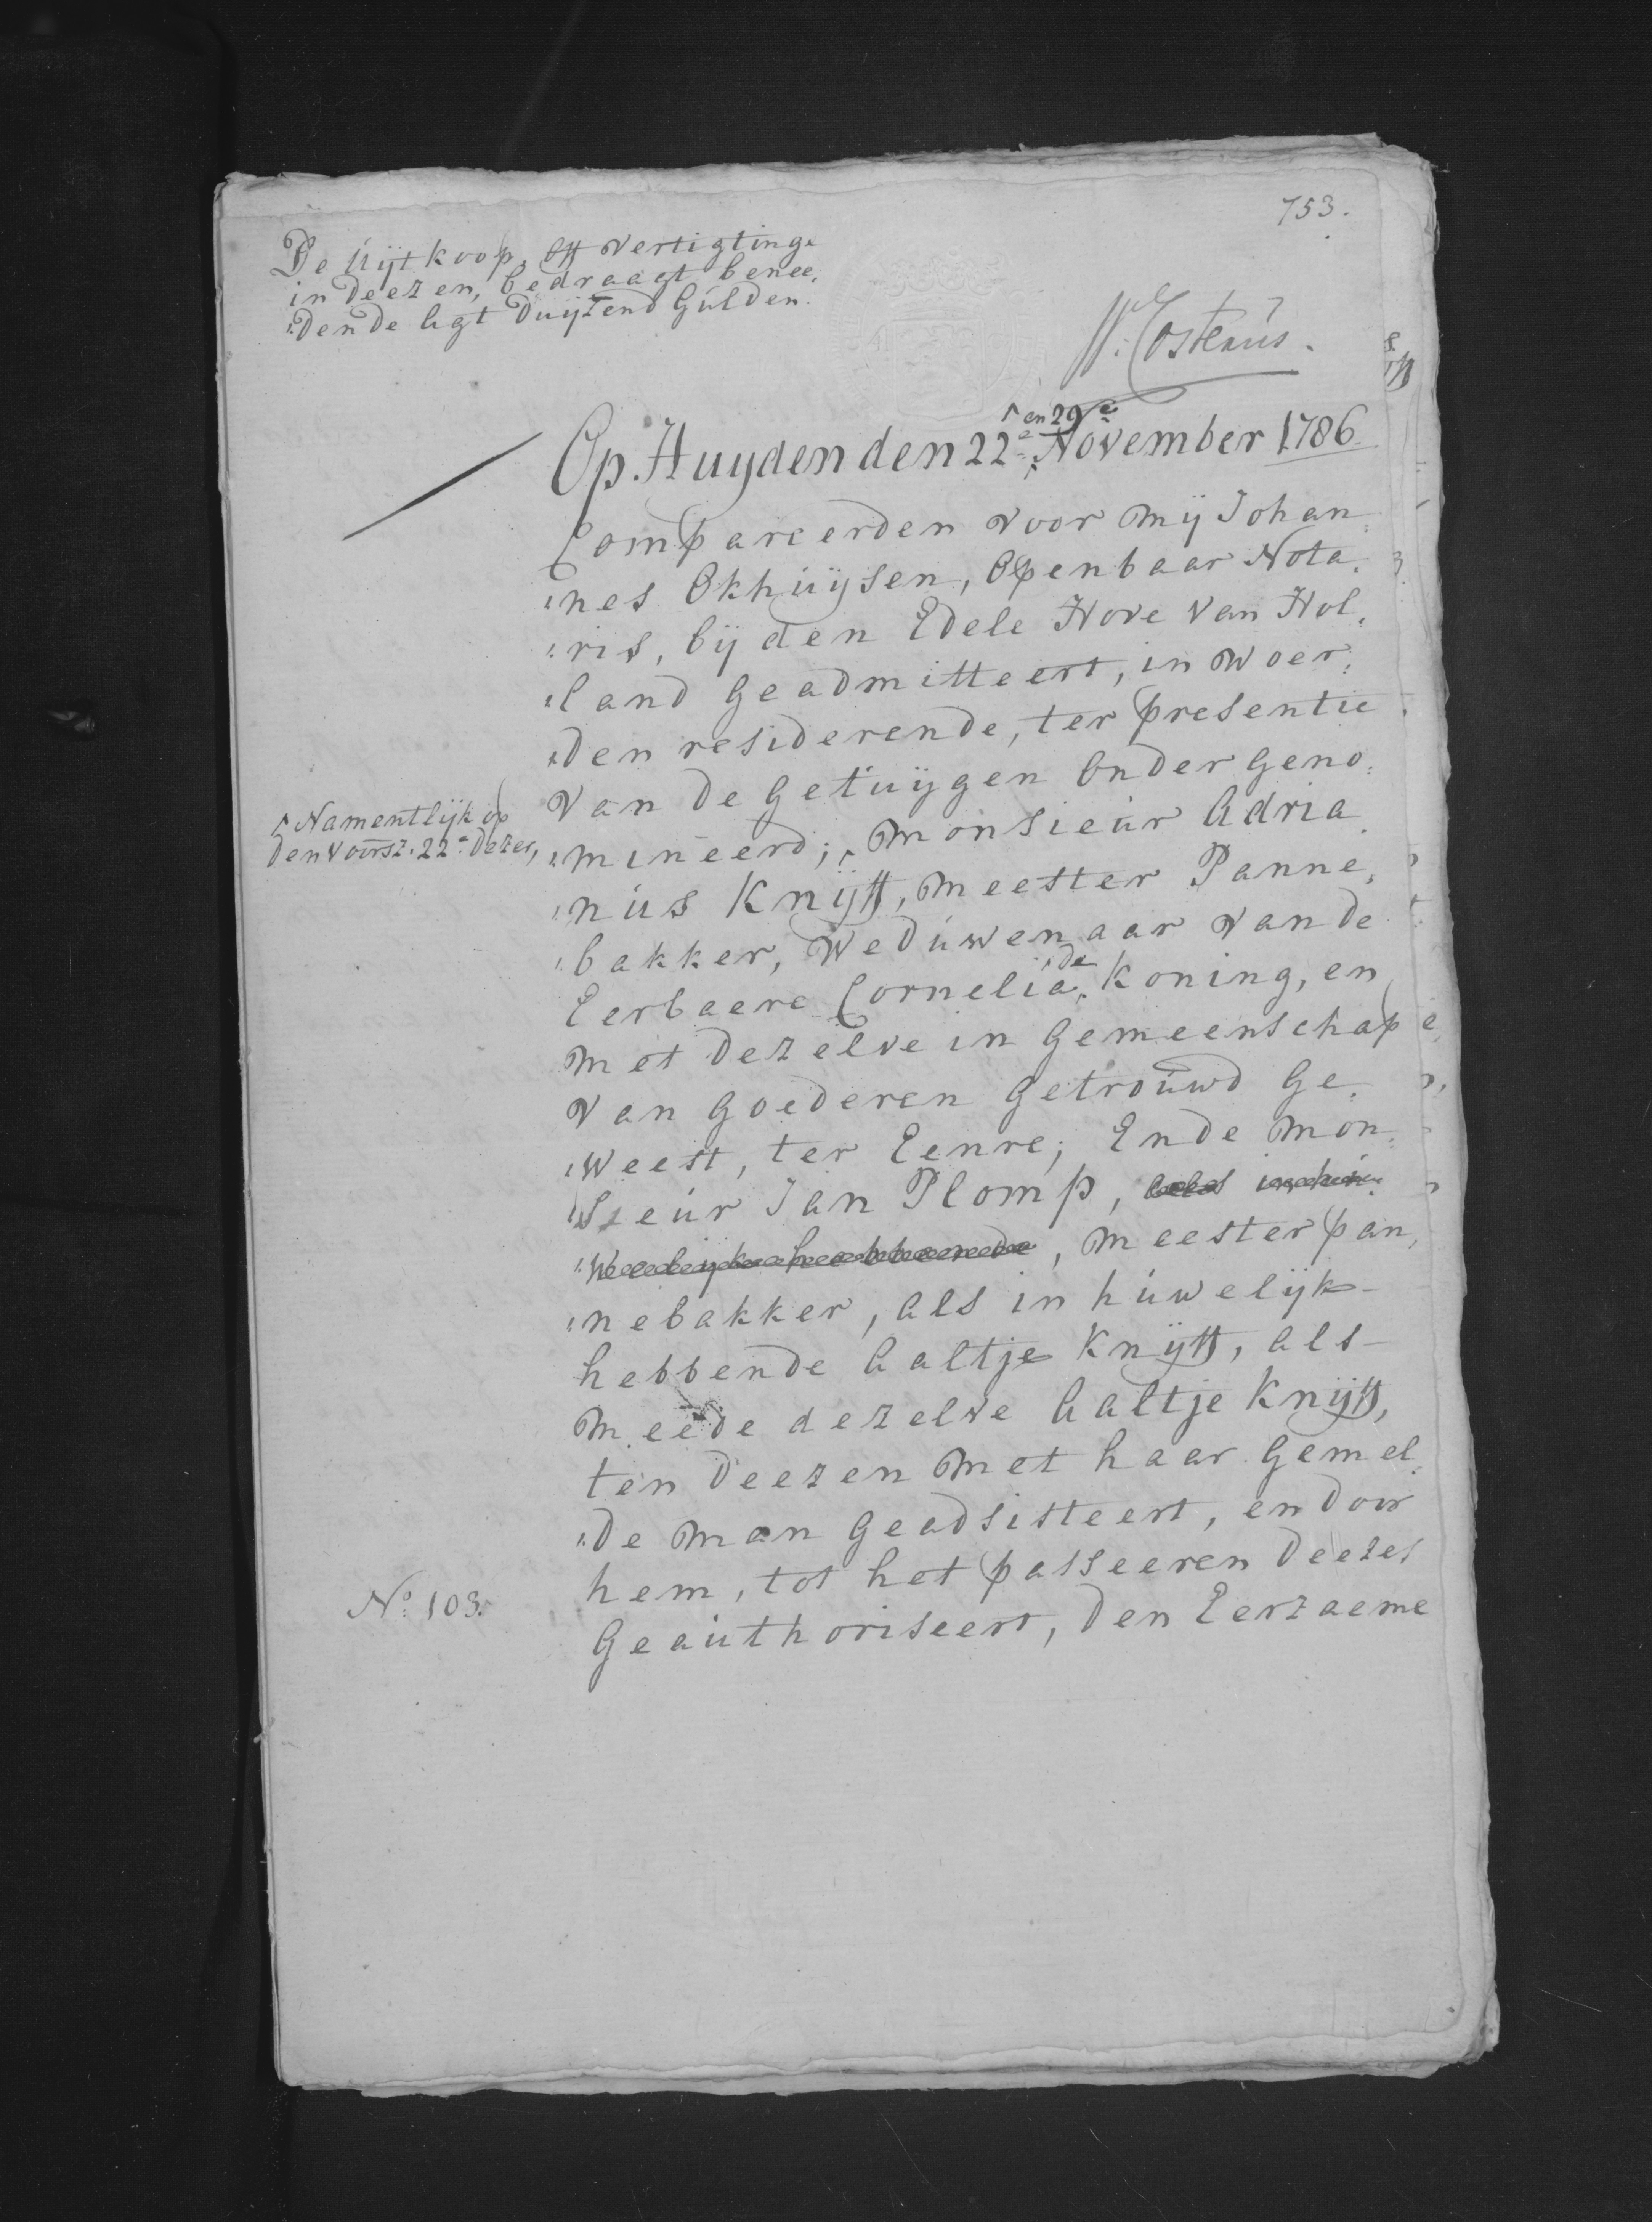 753.
De Uijtkoop, off Vertigtinge
in deezen, bedraagt benee„
„den de Agt Duijzend Gulden.
W: Costerus.
↑ en 29e
Op Huyden den 22e November 1786
Compareerden voor Mij Johan„
„nes Okhuijsen, Openbaar Nota„
„ris, bij den Edele Hove van Hol„
„land Geadmitteert, in Woer„
„den residerende, ter presentie
van de Getuijgen Ondergeno„
↑ Namentlijk op
den voorsz. 22e dezer,
„mineerd; ↑ Monsieur Adria„
„nus Knijff, Meester Panne„
„bakker, Weduwenaar van de
Eerbaere Cornelia ↑de Koning, en
Met dezelve in Gemeenschap
van Goederen Getrouwd Ge„
„weest, ter Eenre; Ende Mon„
„sieur Jan Plomp, als in hu„
„welijk hebbende, Meester Pan„
„nebakker, als in huwelijk
hebbende Aaltje Knijff, als
Meede dezelve Aaltje Knijff,
ten deezen Met haar Gemel„
„de Man Geadsisteert, en door
hem, tot het passeeren deezes
No. 103.
Geauthoriseert, den Eerzaeme